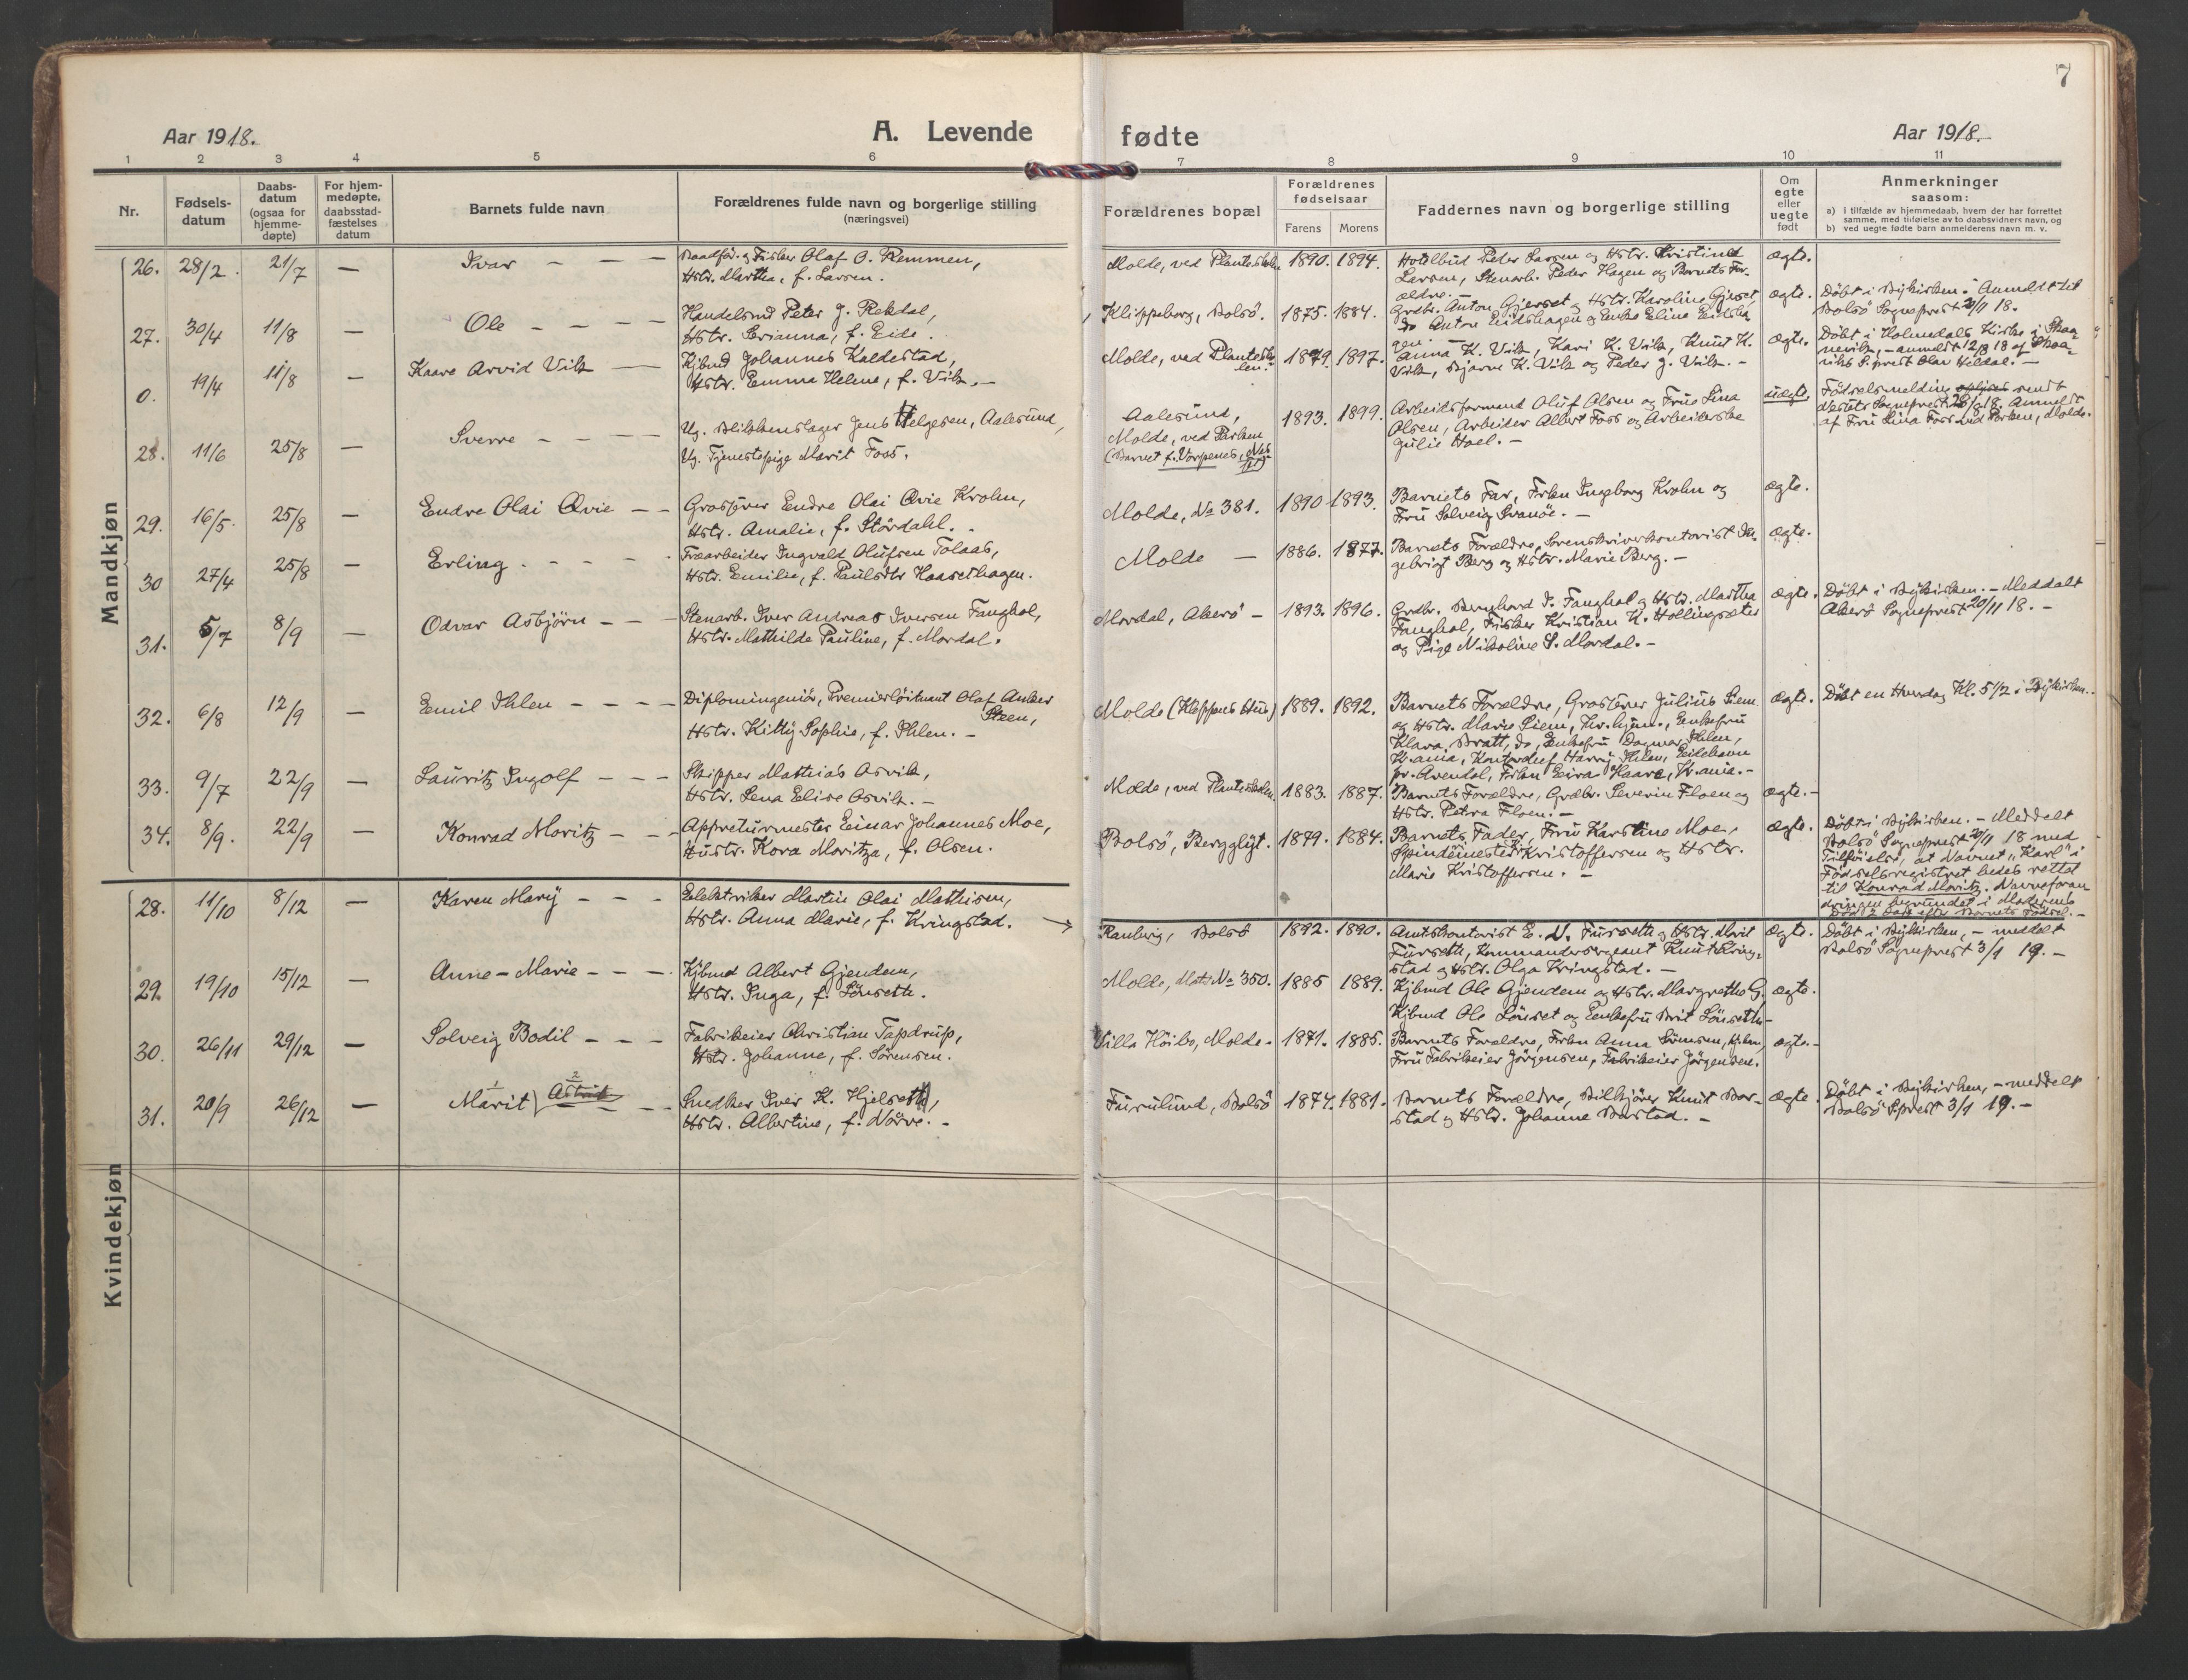 7
Aar 1918.
A. Levende
fødte
Aar 1918.
1 2 3 4 5 6 7 8 9 10 11
Nr.
Fødsels-
datum
Daabs-
datum
(ogsaa for
hjemme-
døpte)
For hjem-
medøpte,
daabsstad-
fæstelses
datum
Barnets fulde navn
Forældrenes fulde navn og borgerlige stilling
(næringsvei)
Forældrenes bopæl
Forældrenes
fødselsaar
Farens Morens
Faddernes navn og borgerlige stilling
Om
egte
eller
uegte
født
Anmerkninger
saasom:
a) I tilfælde av hjemmedaab, hvem der har forrettet
samme, med tilføielse av to daabsvidners navn, og
b) ved uegte fødte barn anmelderens navn m. v.
Mandkjøn
26. 28/2. 21/7 — Ivar — — —
Baadför. & Fisker Olaf O. Remmen,
Hstr. Martha, f. Larsen.
Molde, ved Planteskolen 1890. 1894.
Hotelbud Peder Larsen og Hstr. Kristine
Larsen, Stenarb. Peder Hagen og Barnets For-
ældre. —
ægte.
27. 30/4 11/8 — Ole — — — —
Handelsmd Peter J. Rekdal,
Hstr. Serianna, f. Eide.
Klippeborg, Bolsö. 1875. 1884.
Grdbr. Anton Gjerset og Hstr. Karoline Gjerset,
do Anton Eidshagen og Enke Eline Eidsha-
gen. —
ægte.
Döbt i Bykirken. Anmeldt til
Bolsö Sogneprest 20/11 18.
0. 19/4 11/8 — Kaare Arvid Vik — —
Kjbmd Johannes Kaldestad,
Hstr. Emma Helene, f. Vik. —
Molde, ved Plantesko-
len. 1879. 1897.
Anna K. Vik, Kari K. Vik, Knut K.
Vik, Bjarne K. Vik og Peder J. Vik. —
ægte.
Döbt i Holmedals Kirke i Skaa-
nevik, — anmeldt 12/8 18 af Skaa-
neviks S.prest Olav Hildal. —
28. 11/6 25/8 — Sverre — — — —
Ug. Blikkenslager Jens Helgesen, Aalesund,
Ug. Tjenestepige Marit Foss.
Aalesund,
Molde, ved Parken
(Barnet f. Vorpenes, Nes-
set) 1893. 1899.
Arbeidsformand Oluf Olsen og Frue Lina
Olsen, Arbeider Albert Foss og Arbeiderske
Julie Hoel. —
uægte.
Födselsmelding sendt
Nessets Sogneprest 28/8 18. Anmeldt
af Fru Lina Foss ved Parken, Molde.
29. 16/5. 25/8 — Endre Olai Qvie — —
Grosserer Endre Olai Qvie Krohn,
Hstr. Amalie, f. Stördahl. .
Molde, No 381. 1890 1893.
Barnets Far, Frkn Ingeborg Krohn og
Fru Solveig Svanöe. —
ægte.
30 27/4 25/8 — Erling. — — — .
Træarbeider Ingvald Olufsen Tolaas,
Hstr. Emilie, f. Paulsdtr Haasethagen.
Molde — 1886. 1877.
Barnets Forældre, Sorenskriverkontorist In-
gebrigt Berg og Hstr. Marie Berg. —
ægte.
31. 5/7 8/9 — Odvar Asbjörn — — —
Stenarb. Iver Andreas Iversen Fanghol,
Hstr. Mathilde Pauline, f. Mordal.
Mordal, Akerö — 1893. 1896.
Grdbr. Bernhard I. Fanghol og Hstr. Martha
Fanghol, Fisker Kristian K. Hollingsæter
og Pige Nikoline S. Mordal. —
ægte.
Döbt i Bykirken. — Meddelt
Akerö Sogneprest 20/11 18. —
32. 6/8 12/9 — Emil Ihlen — — — —
Diplomingeniör, Premierlöitnant Olaf Anker
Steen,
Hstr. Kitty Sophie, f. Ihlen. —
Molde (Kleppens Hus) 1889. 1892.
Barnets Forældre, Grosserer Julius Siem
og Hstr. Marie Siem, Enkefru
Klara Bratt, do, Enkefru Dagmar Ihlen,
Kr.ania, Kontorchef Harry Ihlen, Eidehavn
pr. Arendal, Frkn Eira Haare, Kr.ania. —
ægte.
Döbt en Hverdag Kl. 5 1/2 i Bykirken.
33. 9/7 22/9 — Lauritz Ingolf — — —
Skipper Mathias Osvik,
Hstr. Lena Elise Osvik. —
Molde, ved Planteskolen. 1883. 1887.
Barnets Forældre, Grdbr. Severin Floen og
Hstr. Petra Floen. —
ægte. —
34. 8/9. 22/9 — Konrad Moritz — — —
Appreturmester Einar Johannes Moe,
Hustr. Kora Moritza, f. Olsen.
Bolsö, Berggløt. 1879. 1884.
Barnets Fader, Fru Karstine Moe,
Spindemester Kristoffersen og Hstr.
Marie Kristoffersen. —
ægte.
Döbt i Bykirken. — Meddelt
Bolsö Sogneprest 20/11 18 med
Tilföielse, at Navnet „Karl" i
Födselsregistret bedes rettet
til Konrad Moritz. Navneforan
dringen begrundet i Moderens
Död 2 Dage efter Barnets Födsel. —
Kvindekjøn
28. 11/10 8/12 — Karen Mary — — —
Elektriker Martin Olai Mathisen,
Hstr. Anna Marie, f. Kringstad. →
Ranberg, Bolsö 1892. 1890.
Amtskontorist E. N. Furseth og Hstr. Marit
Furseth, Kommandersergeant Knut Kring-
stad og Hstr. Olga Kringstad. —
ægte.
Döbt i Bykirken, — meddelt
Bolsö Sogneprest 3/1 19. —
29. 19/10 15/12 — Anne-Marie — — — .
Kjbmd Albert Gjendem,
Hstr. Inga, f. Lönseth.
Molde, Matr No 350. 1885 1889.
Kjbmd Ole Gjendem og Hstr. Margrethe G.,
Kjbmd Ole Lönset og Enkefru Brit Lönseth —
ægte.
30. 26/11 29/12 — Solveig Bodil — — —
Fabrikeier Christian Tapdrup,
Hstr. Johanne, f. Sörensen.
Villa Höibo, Molde. 1871. 1885.
Barnets Forældre, Frkn Anna Sörensen, Kj.havn,
Fru Fabrikeier Jörgensen, Fabrikeier Jörgensen.
ægte. —
31. 20/9 26/12 — Marit Astrid — — —
Snedker Iver K. Hjelseth,
Hstr. Albertine, f. Nörve. —
Furulund, Bolsö 1874. 1881.
Barnets Forældre, Bilkjörer Knut Bor-
stad og Hstr. Johanne Borstad. —
ægte.
Döbt i Bykirken, — meddelt
Bolsö S.prest 3/1 19. —